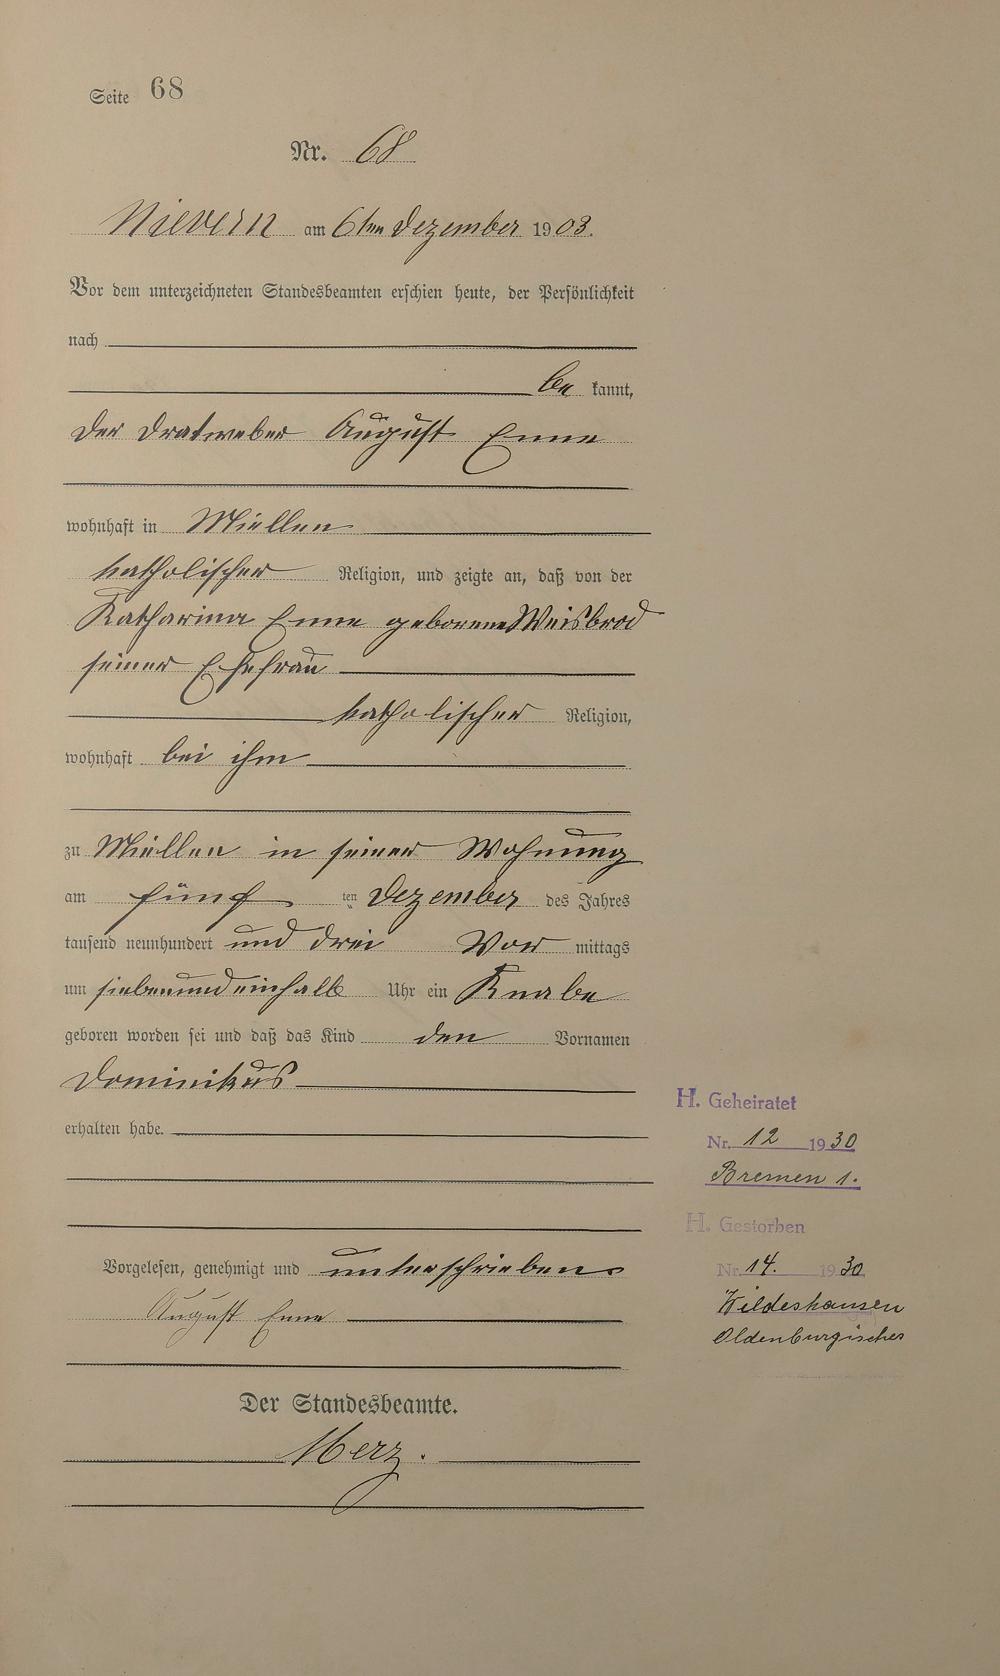 Seite 68
Nr. 68
Nievern am 6ten Dezember 1903.
Vor dem unterzeichneten Standesbeamten erschien heute, der Persönlichkeit
nach
be kannt,
der Dratweber August Enne
wohnhaft in Miellen
katholischer Religion, und zeigte an, daß von der
Katharina Enne geborene Weisbrod
seiner Ehefrau
katholischer Religion,
wohnhaft bei ihm
zu Miellen in seiner Wohnung
am fünf ten Dezember des Jahres
tausend neunhundert und drei Vor mittags
um siebenundeinhalb Uhr ein Knabe
geboren worden sei und daß das Kind den Vornamen
Dominikus
erhalten habe.
Vorgelesen, genehmigt und unterschrieben
August Enne
Der Standesbeamte.
Merz.
H. Geheiratet
Nr. 12 1930
Bremen 1.
H. Gestorben
Nr. 14. 1930
Wildeshausen
Oldenburgisches